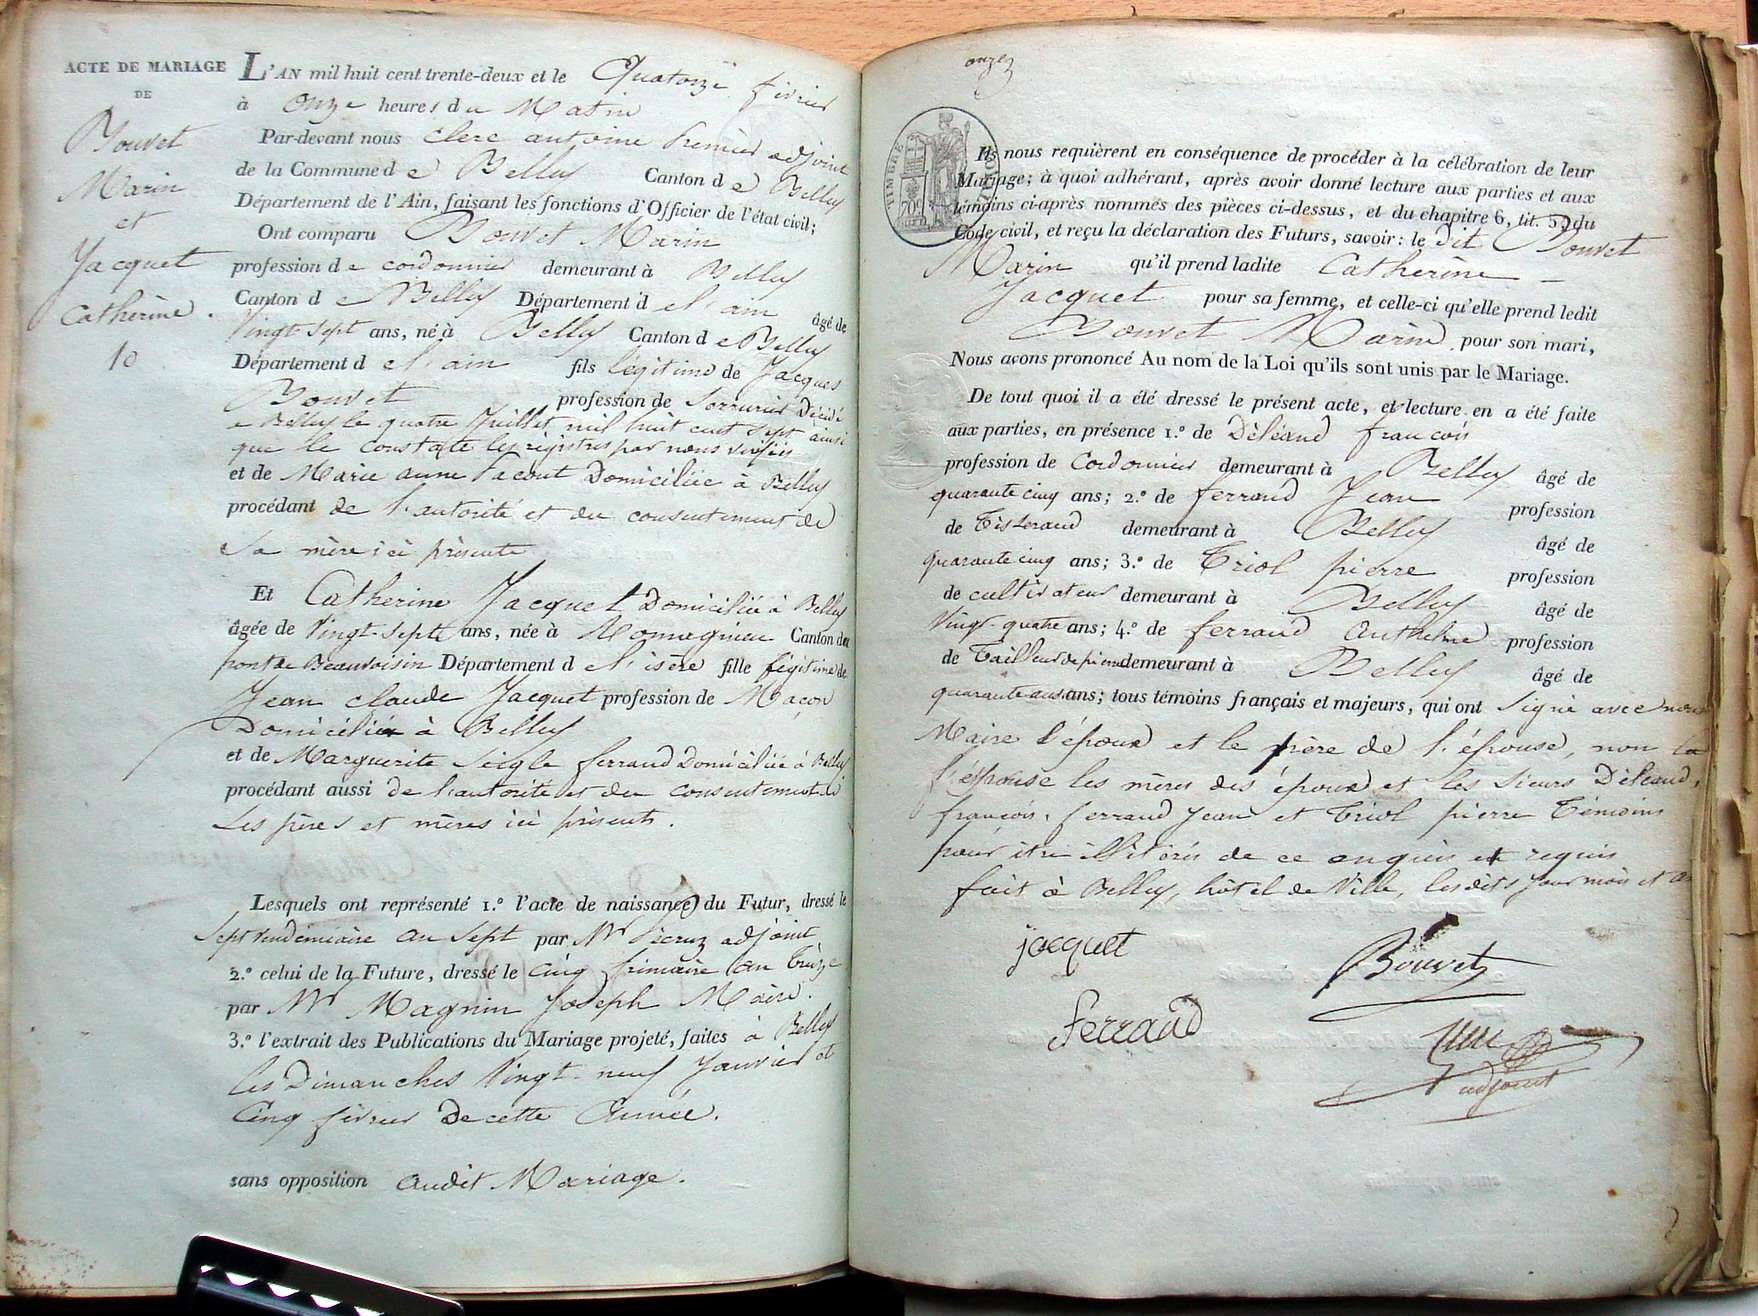 ACTE DE MARIAGE
DE
Bouvet
Marin
et
Jacquet
Catherine.
10
L'AN mil huit cent trente-deux et le Quatorze février
à onze heures du Matin
Par-devant nous Clerc antoine Premier adjoint
de la Commune de Belley Canton de Belley
Département de l'Ain, faisant les fonctions d'Officier de l'état civil;
Ont comparu Bouvet Marin
profession de cordonnier demeurant à Belley
Canton de Belley Département de l'ain âgé de
Vingt-sept ans, né à Belley Canton de Belley
Département de l'ain fils légitime de Jacques
Bouvet profession de Serrurier Décédé
à Belley le quatre Juillet mil huit cent sept ainsi
que le constate les régistres par nous vérifiés
et de Marie anne Domiciliée à Belley
procédant de l'autorité et du consentement de
Sa mère ici présente
Et Catherine Jacquet Domiciliée à Belley
âgée de Vingt-septe ans, née à Romagnieu Canton du
pont de Beauvoisin Département de l'isère fille légitime de
Jean claude Jacquet profession de Maçon
Domicilié à Belley
et de Marguerite Seigle ferrand Domiciliée à Belley
procédant aussi de l'autorité et du consentement de
Ses pères et mères ici présents.
Lesquels ont représenté 1.º l'acte de naissance du Futur, dressé le
Sept vendémiaire an sept par Mr adjoint
2.º celui de la Future, dressé le Cinq frimaire an treize
par Mr Magnin Joseph Maire.
3.º l'extrait des Publications du Mariage projeté, faites à Belley
les Dimanches Vingt-neuf Janvier et
Cinq février De cette Année.
sans opposition audit Mariage.
onze
TIMBRE ROYAL
Ils nous requièrent en conséquence de procéder à la célébration de leur
Mariage; à quoi adhérant, après avoir donné lecture aux parties et aux
témoins ci-après nommés des pièces ci-dessus, et du chapitre 6, tit. 5 du
Code civil, et reçu la déclaration des Futurs, savoir: le dit Bouvet
Marin qu'il prend ladite Catherine
Jacquet pour sa femme, et celle-ci qu'elle prend ledit
Bouvet Marin pour son mari,
Nous avons prononcé Au nom de la Loi qu'ils sont unis par le Mariage.
De tout quoi il a été dressé le présent acte, et lecture en a été faite
aux parties, en présence 1.º de Déléaud françois
profession de Cordonnier demeurant à Belley âgé de
quarante cinq ans; 2.º de ferrand Jean profession
de Tisserand demeurant à Belley âgé de
quarante cinq ans; 3.º de Triol pierre profession
de cultivateur demeurant à Belley âgé de
Vingt-quatre ans; 4.º de ferrand Anthelme profession
de Tailleur de pierre demeurant à Belley âgé de
quarante ans ans; tous témoins français et majeurs, qui ont Signé avec nous
Maire l'époux et le père de l'épouse, non
l'épouse les mères des époux et les Sieurs Déléaud,
françois, ferrand Jean et Triol pierre Témoins
pour être illitérés de ce enquis et requis
fait à Belley, hôtel de Ville, les dits jour mois et an
jacquet
Bouvet
ferrand
Clerc
adjoint